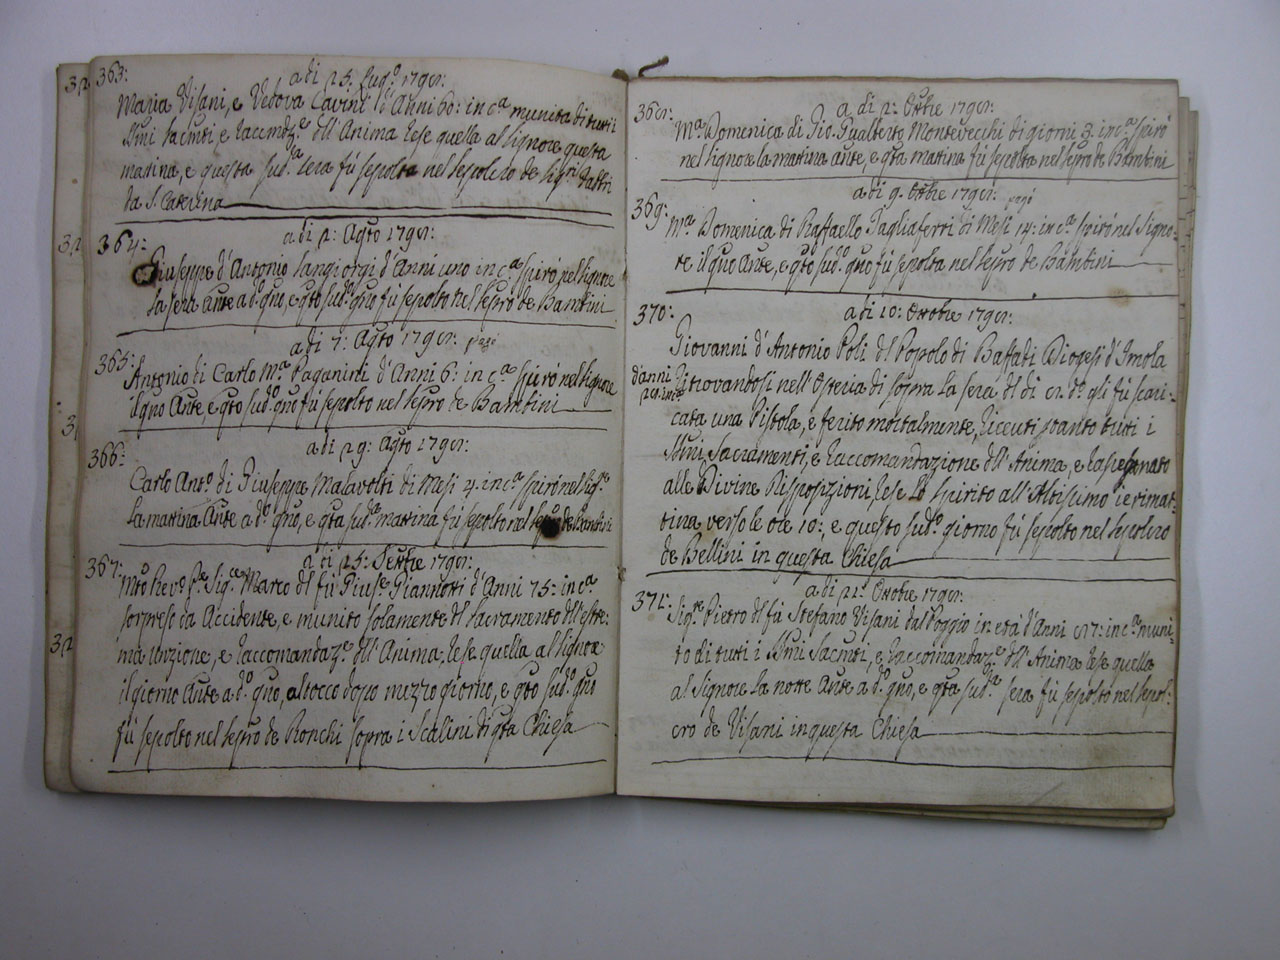 363:
a di 25. Lug.º 1798:
Maria Visani, e Vedova Cavini d'Anni 60: in c.ª munita di tutti
SSmi Sacmti, e Raccmdz.e dll'Anima rese quella al Signore questa
matina, e questa sud.ª sera fú sepolta nel Sepolcro de Sig.ri
da S. Caterina
364:
a di 2: Agto 1798:
Giuseppe d'Antonio Sangiorgi d'Anni uno in c.ª spiró nel Signore
la sera Ante a d.º gno, e qto sud.º gno fú sepolto nel Sepro de Bambini
a di 7: Agto 1798: pagó
365:
Antonio di Carlo M.ª Paganini d'Anni 6: in c.ª spiró nel Signore
il gno Ante, e qto sud.º gno fú sepolto nel Sepro de Bambini
a di 29: Agto 1798:
366:
Carlo Ant.º di Giuseppe Malavolti di Mesi 4. in c.ª spiró nel Sig.re
la matina Ante a d.º gno, e qta sud.ª matina fú sepolto nel Sepro de Bambini
a di 25: Settre 1798:
367:
Mto Rev.º Sig.re Marco dl fú Giuse Giannotti d'Anni 75: in c.ª
sorpreso da Accidente, e munito solamente dl Sacramento dll'estre:
ma Unzione, e Raccomandaz.e dll'Anima, rese quella al Signore
il giorno Ante a d.º gno, al tocco dopo mezzo giorno, e qto sud.º gno
fú sepolto nel Sepro de Ronchi sopra i Scalini di qta Chiesa
a di 2: Ottre 1798:
368:
M.ª Domenica di Gio. Gualberto Montevecchi di giorni 3. in c.ª spiró
nel Signore la matina ante, e qta matina fú sepolta nel Sepro de Bambini
a di 9. Ottre 1798:
pagó
369:
M.ª Domenica di Raffaello Tagliaferri di Mesi 14: in c.ª spiró nel Signo:
re il gno Ante, e qto sud.º gno fú sepolta nel Sepro de Bambini
a di 10: Ottobre 1798:
370:
Giovanni d'Antonio Poli dl Popolo di Baffadi Diogesi d'Imola
d'anni
Ritrovandosi nell'Osteria di sopra la sera dl di 8. d.º gli fú scari:
cata una Pistola, e ferito mortalmente, ricevuti tanto tutti i
SSmi Sacramenti, e Raccomandazione dll'Anima, e rassegnato
alle Divine Disposizioni, rese lo Spirito all'Altissimo ieri mat:
tina verso le ore 10:, e questo sud.º giorno fú sepolto nel Sepolcro
de Bellini in questa Chiesa
a di 21: Ottobre 1798:
371:
Sig.re Pietro dl fú Stefano Visani dal Poggio in età d'Anni 87: in c.ª muni:
to di tutti i SSmi Sacmti, e Raccomandaz.e dll'Anima rese quella
al Signore la notte Ante a d.º gno, e qta sud.ª sera fú sepolto nel Sepol:
cro de Visani in questa Chiesa